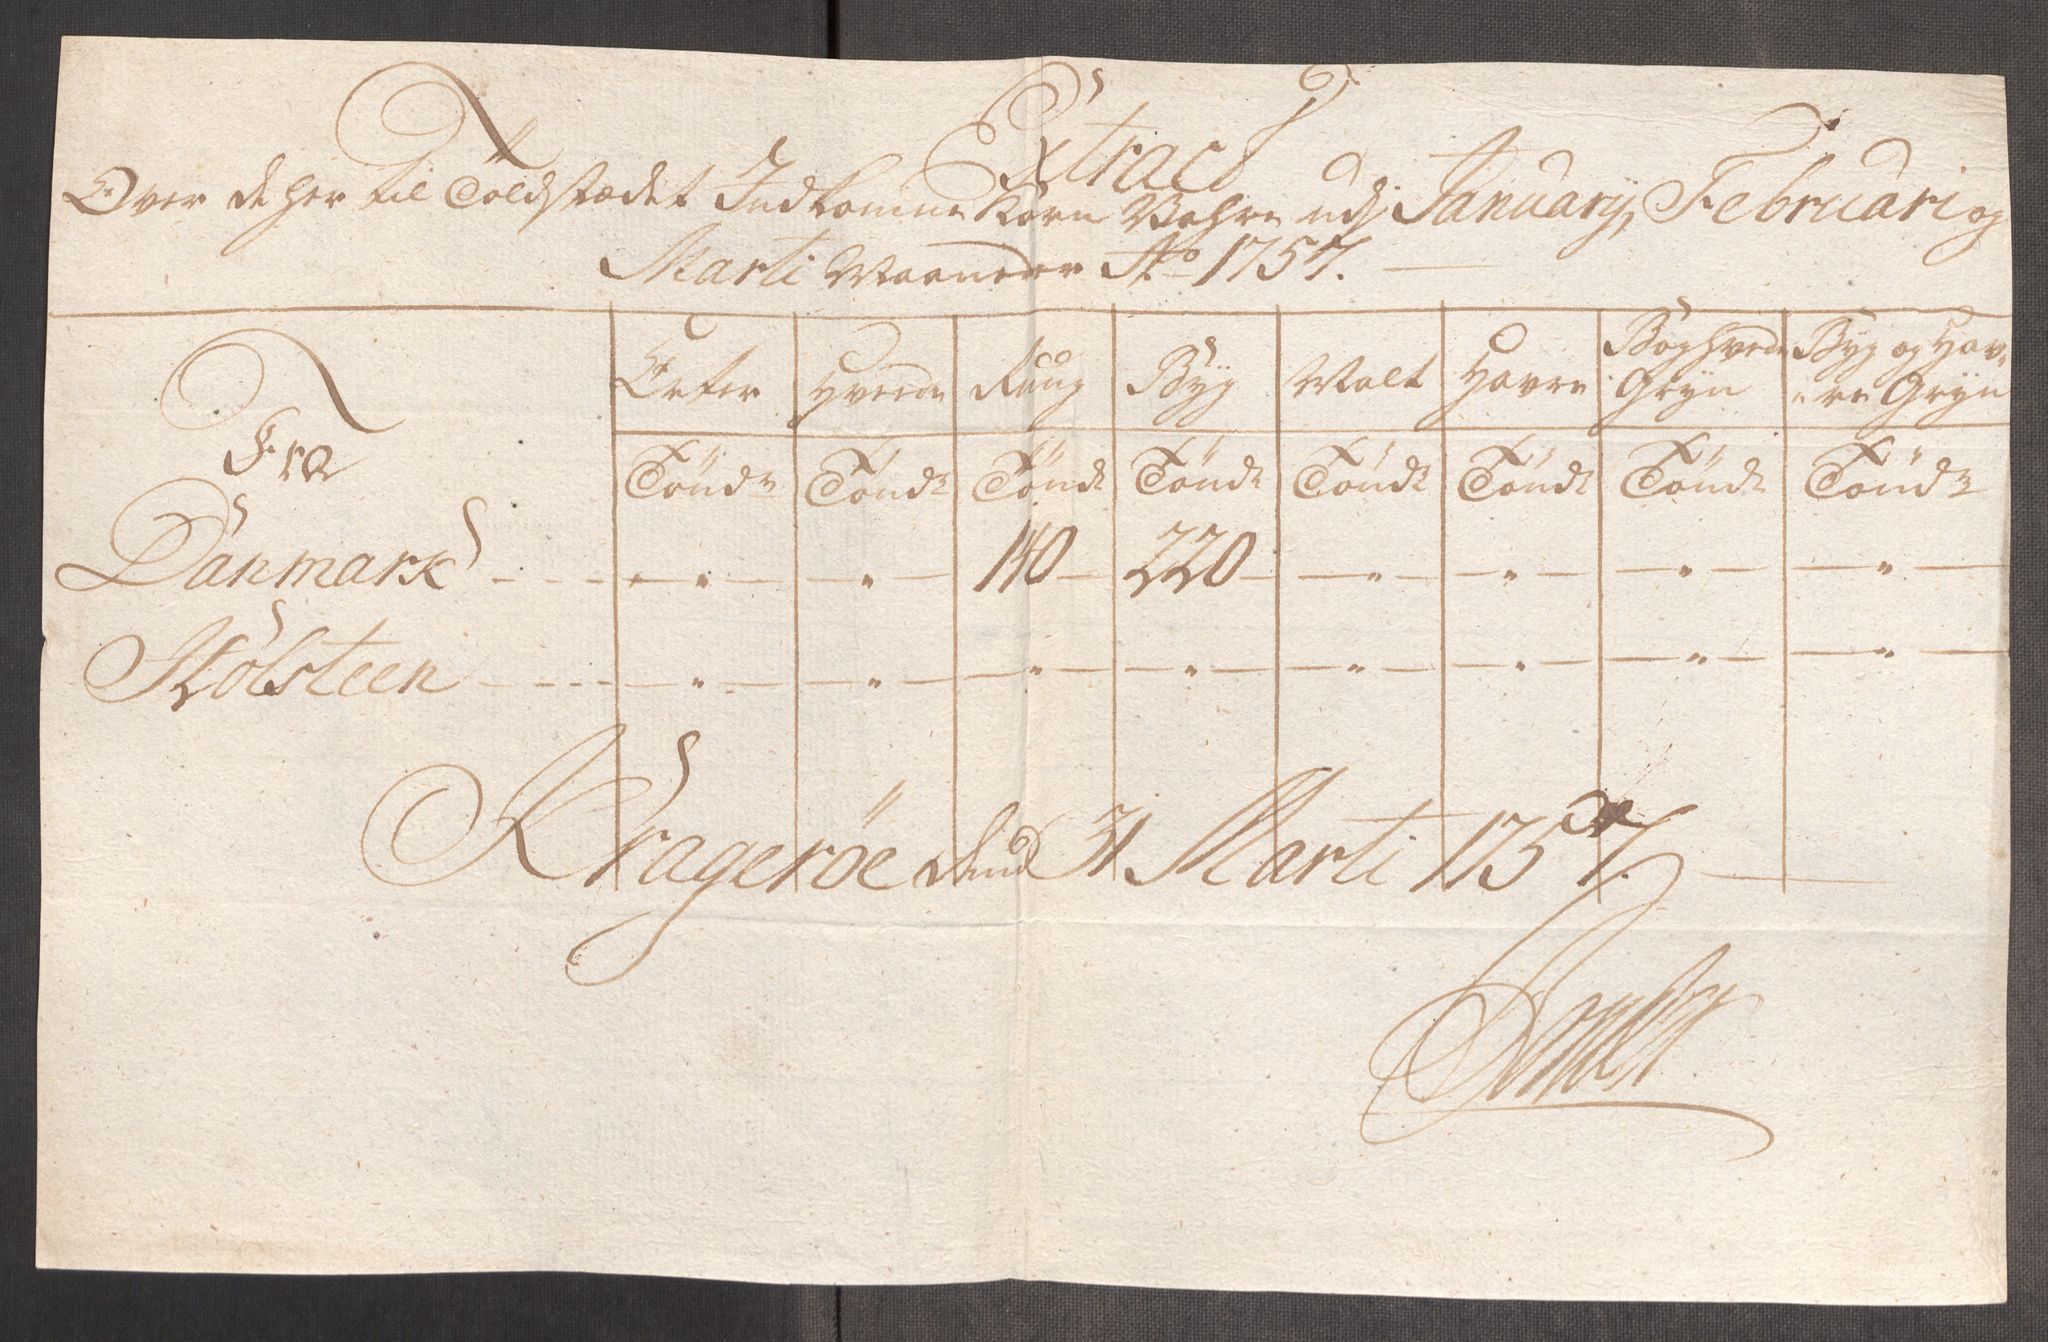 Extract
Over de her til Toldstædet Indkomne Korn Vahre udj January, Februari og
Marti Maaneder Ao 1757.
Fra | Erter | Hvede | Ruug | Byg | Malt | Havre | Boghvede Gryn | Byg og Hav= =re Gryn
Tönde | Tönde | Tönde | Tönde | Tönde | Tönde | Tönde | Tönde
Danmark - - - - " - | - " - | 140 - | 220 - | - " - | - " - | - " - | - " -
Holsteen - - - - " - | - " - | - " - | - " - | - " - | - " - | - " - | - " -
Krageröe dend 31 Marti 1757.